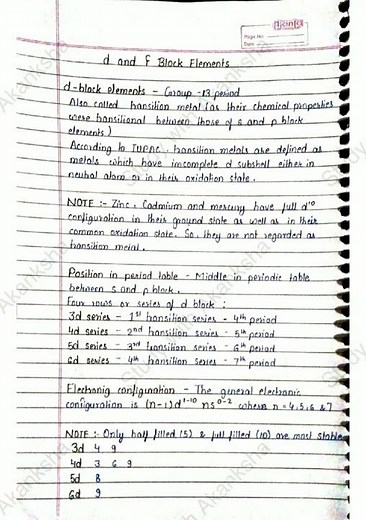 Page No.
Date
d and f Block Elements
d-block elements - Group -13 period
Also called transition metal (as their chemical properties
were transitional between those of s and p block
elements)
According to IUPAC, transition metals are defined as
metals which have incomplete d subshell either in
neutral atom or in their oxidation state.
NOTE :- Zinc, Cadmium and mercury have full d¹⁰
configuration in their ground state as well as in their
common oxidation state. So, they are not regarded as
transition metal.
Position in period table - Middle in periodic table
between s and p block.
Four rows or series of d block :
3d series - 1st transition series - 4th period
4d series - 2nd transition series - 5th period
5d series - 3rd transition series - 6th period
6d series - 4th transition series - 7th period
Electronig configuration - The general electronic
configuration is (n-1)d¹⁻¹⁰ ns⁰⁻² where n = 4,5,6 & 7
NOTE :- Only half filled (5) & full filled (10) are most stable
3d 4 9
4d 3 6 9
5d 8
6d 9
Study with Akanksha